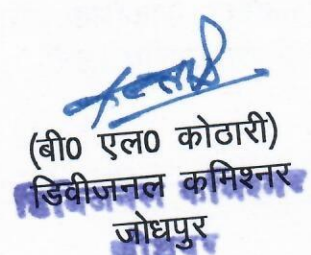 (बी0 एल0 कोठारी)
डिवीजनल कमिश्नर
जोधपुर